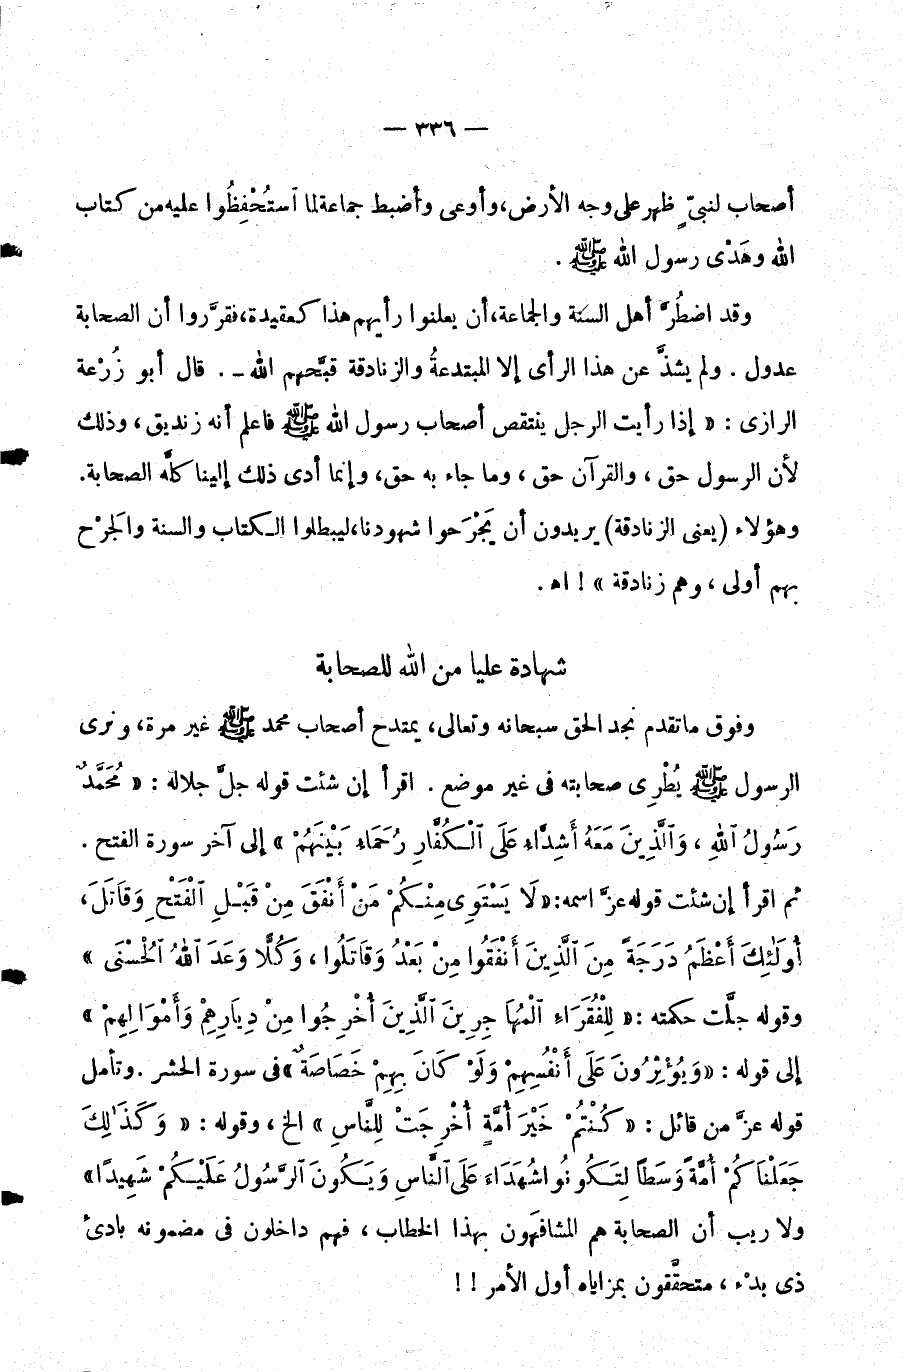 — ٣٣٦ —
أصحاب لنبىّ ظهر على وجه الأرض، وأوعى وأضبط جماعة لما ٱستُحْفِظُوا عليه من كتاب
الله وهَدْى رسول الله ﷺ .
وقد اضطُرَّ أهل السنة والجماعة، أن يعلنوا رأيهم هذا كعقيدة، فقرَّروا أن الصحابة
عدول . ولم يشذَّ عن هذا الرأى إلا المبتدعةُ والزنادقة قبَّحهم الله - . قال أبو زُرْعة
الرازى : « إذا رأيت الرجل ينتقص أصحاب رسول الله ﷺ فاعلم أنه زنديق، وذلك
لأن الرسول حق ، والقرآن حق ، وما جاء به حق، وإنما أدى ذلك إلينا كلَّه الصحابة.
وهؤلاء (يعنى الزنادقة) يريدون أن يَجْرَحوا شهودنا، ليبطلوا الكتاب والسنة والجَرْح
بهم أولى ، وهم زنادقة » ! اه .
شهادة عليا من الله للصحابة
وفوق ما تقدم نجد الحق سبحانه وتعالى، يمتدح أصحاب محمد ﷺ غير مرة، ونرى
الرسول ﷺ يُطْرِى صحابته فى غير موضع . اقرأ إن شئت قوله جلَّ جلاله : « مُحَمَّدٌ
رَسُولُ ٱللهِ ، وَٱلَّذِينَ مَعَهُ أَشِدَّاءِ عَلَى ٱلْكُفَّارِ رُحَمَاءِ بَيْنَهُمْ » إلى آخر سورة الفتح .
ثم اقرأ إن شئت قوله عزَّ اسمه: «لَا يَسْتَوِى مِنْكُمْ مَنْ أَنْفَقَ مِنْ قَبْلِ ٱلْفَتْحِ وَقَاتَلَ،
أُولَٰئِكَ أَعْظَمُ دَرَجَةً مِنَ ٱلَّذِينَ أَنْفَقُوا مِنْ بَعْدُ وَقَاتَلُوا ، وَكُلًّا وَعَدَ ٱللهُ ٱلْحُسْنَى »
وقوله جلَّت حكمته : « لِلْفُقَرَاءِ ٱلْمُهَاجِرِينَ ٱلَّذِينَ أُخْرِجُوا مِنْ دِيَارِهِمْ وَأَمْوَالِهِمْ »
إلى قوله : «وَيُؤْثِرُونَ عَلَى أَنْفُسِهِمْ وَلَوْ كَانَ بِهِمْ خَصَاصَةٌ» فى سورة الحشر . وتأمل
قوله عزَّ من قائل : « كُنْتُمْ خَيْرَ أُمَّةٍ أُخْرِجَتْ لِلنَّاسِ » الخ ، وقوله : « وَكَذَٰلِكَ
جَعَلْنَاكُمْ أُمَّةً وَسَطًا لِتَكُونُوا شُهَدَاءَ عَلَى ٱلنَّاسِ وَيَكُونَ ٱلرَّسُولُ عَلَيْكُمْ شَهِيدًا»
ولا ريب أن الصحابة هم المشافَهون بهذا الخطاب ، فهم داخلون فى مضمونه بادئ
ذى بدْء ، متحقَّقون بمزاياه أول الأمر ! !